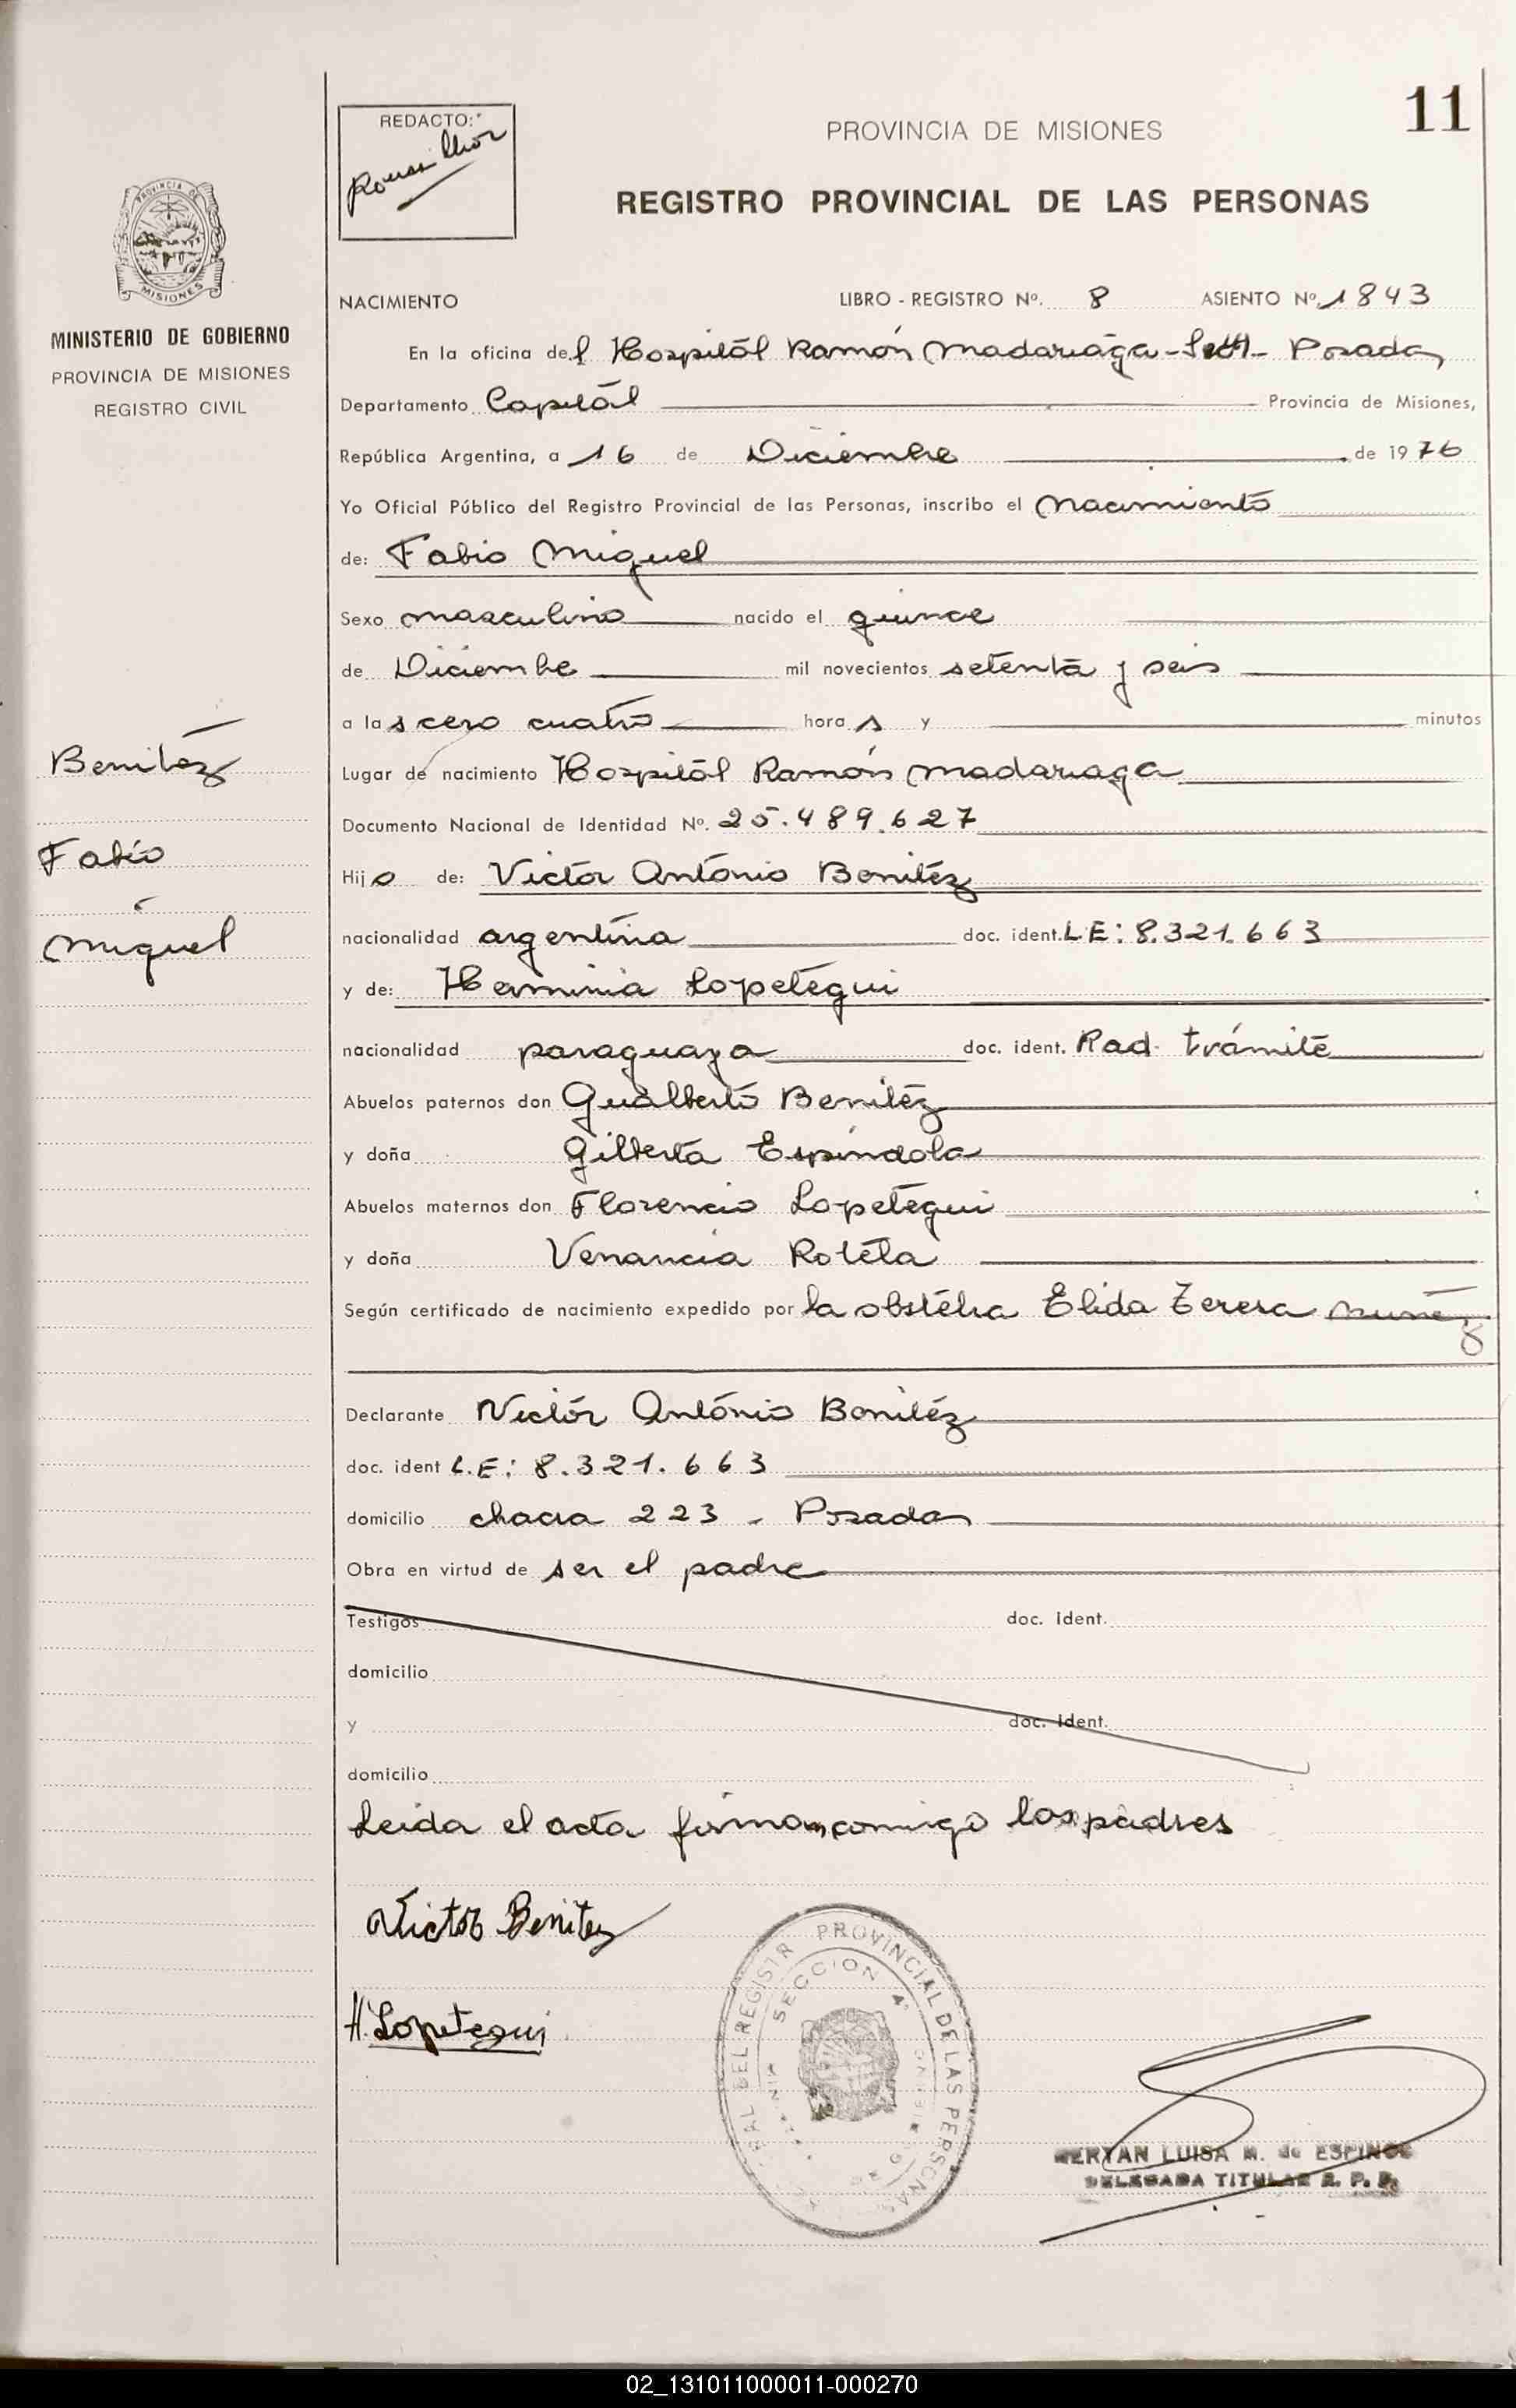 11
REDACTO:
PROVINCIA DE MISIONES
REGISTRO PROVINCIAL DE LAS PERSONAS
PROVINCIA DE
MISIONES
MINISTERIO DE GOBIERNO
PROVINCIA DE MISIONES
REGISTRO CIVIL
Benitez
Fabio
Miguel
NACIMIENTO LIBRO - REGISTRO Nº. 8 ASIENTO Nº. 1843
En la oficina del Hospital Ramón Madariaga - Posadas
Departamento Capital Provincia de Misiones,
República Argentina, a 16 de Diciembre de 1976
Yo Oficial Público del Registro Provincial de las Personas, inscribo el Nacimiento
de: Fabio Miguel
Sexo masculino nacido el quince
de Diciembre mil novecientos setenta y seis
a las cero cuatro horas y minutos
Lugar de nacimiento Hospital Ramón Madariaga
Documento Nacional de Identidad Nº. 25.489.627
Hijo de: Victor Antonio Benitez
nacionalidad argentina doc. ident. LE: 8.321.663
y de: Herminia Lopetegui
nacionalidad paraguaya doc. ident. Rad. trámite
Abuelos paternos don Gualberto Benitez
y doña Gilberta Espindola
Abuelos maternos don Florencio Lopetegui
y doña Venancia Rotela
Según certificado de nacimiento expedido por la obstetra Elida Teresa Muñez
Declarante Victor Antonio Benitez
doc. ident L.E: 8.321.663
domicilio chacra 223 - Posadas
Obra en virtud de ser el padre
Testigos doc. ident.
domicilio
y doc. ident.
domicilio
Leida el acta firman comigo los padres
Victor Benitez
H. Lopetegui
REGISTR PROVINCIAL DE LAS PERSONAS
SECCION 4ª
LUISA M. de ESPINOS
DELEGADA TITULAR R. P. P.
02_131011000011-000270